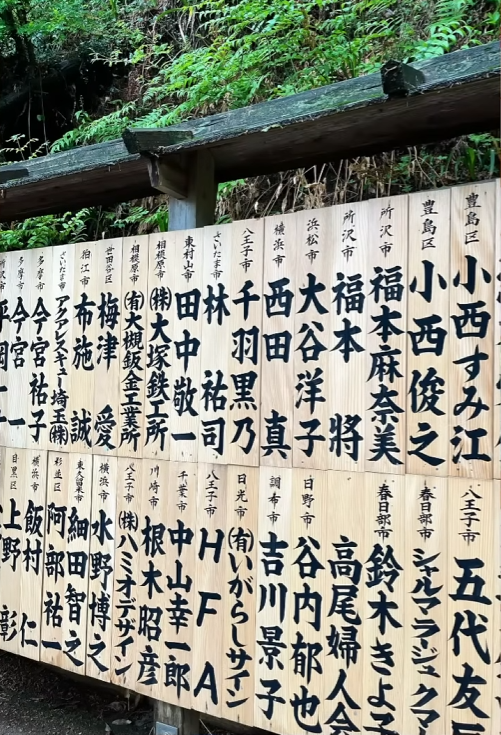 豊島区 小西すみ江
豊島区 小西俊之
所沢市 福本麻奈美
所沢市 福本 將
浜松市 大谷洋子
横浜市 西田 真
八王子市 千羽黒乃
さいたま市 林 祐司
東村山市 田中敬一
相模原市 ㈱大塚鉄工所
相模原市 ㈲大槻鈑金工業所
世田谷区 梅津 愛
狛江市 布施 誠
さいたま市 アクアレスキュー埼玉㈱
多摩市 今宮祐子
多摩市 今宮 一
所沢市 平岡
八王子市 五代友
春日部市 シャルマラージュクマ
春日部市 鈴木きよ子
高尾婦人会
日野市 谷内郁也
調布市 吉川景子
日光市 ㈲いがらしサイン
八王子市 HFA
千葉市 中山幸一郎
川崎市 根木昭彦
八王子市 ㈱ハミオデザイン
横浜市 水野博之
東久留米市 細田智之
杉並区 阿部祐一
横浜市 飯村 仁
目黒区 上野 彰